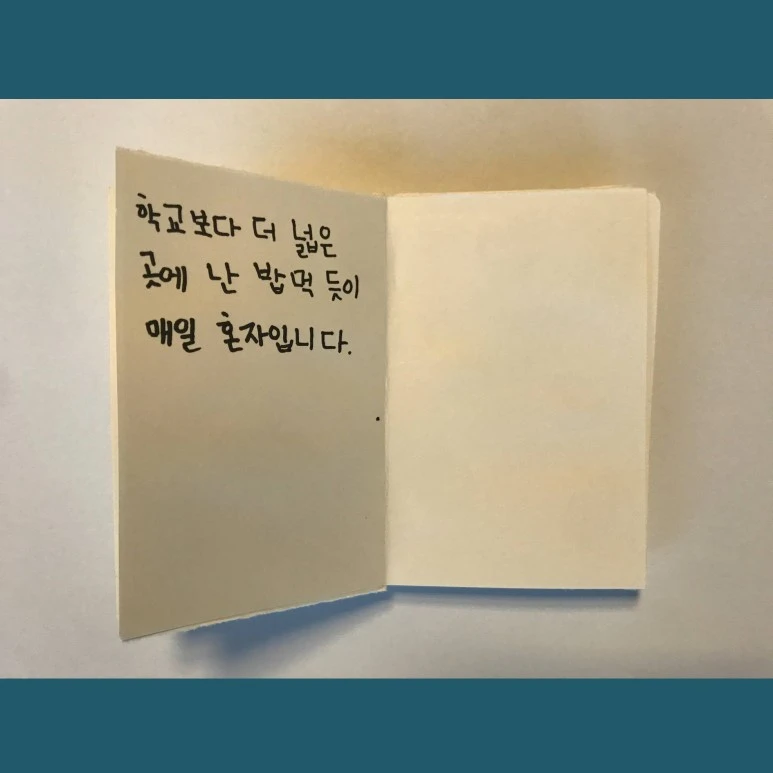 학교보다 더 넓은
곳에 난 밥먹 듯이
매일 혼자입니다.